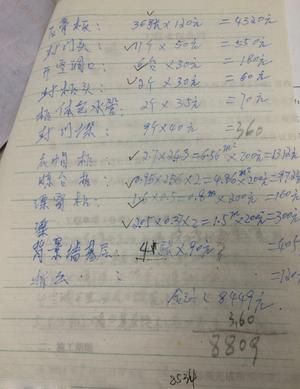 石膏板: 36张×120元 = 4320元
封门头: ✓11个×50元 = 550元
开空调口: ✓6台×30元 = 180元
封柜头: ✓2个×30元 = 60元
柜体包水管: 2个×35元 = 70元
封门楼: 9个×40元 = 360
✓2.7×2.43=6.56m²×200元=1312元
阳台柜: ✓0.95×2.56×2=4.86m²×200元=972元
柜: 1.6×0.5=0.8m²×200元=160元
梁: ✓2.05×0.37×2=1.5m²×200元=300元
背景墙基层: 4.5张×90元 = 405
: =120
合计: 8449元
360
8809
8534